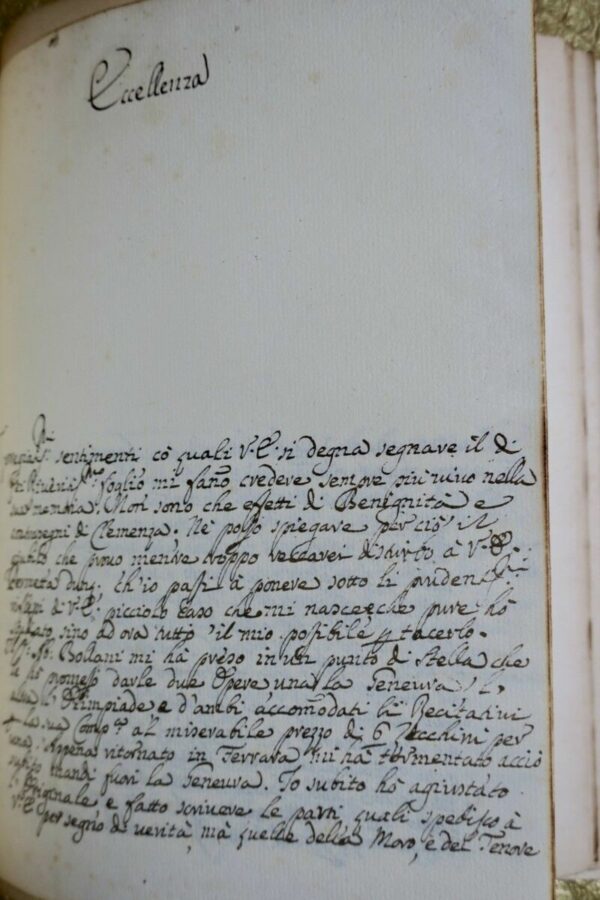 Eccellenza
Gli
sentimenti co quali V.E. si degna segnare il di
foglio mi fano credere sempre più vivo nella
memoria. Non sono che efetti di Benignità e
contrasegni di Clemenza; Ne posso spiegare perciò il
che provo mentre troppo reccarei disturbo à V.E.:
dunq; ch'io passi à ponere sotto li prudentissimi
di V.E: picciolo caso che mi nasce, e che pure hò
sino ad ora tutto il mio possibile p tacerlo.
Bollani mi hà preso in un punto di Stella che
li hò promesso darle due Opere, una la Geneura, l'
altra l'Olimpiade e d'ambi accommodati li Recitativi
p la sua Comp.a al miserabile prezzo di 6 Zecchini per
una. Appena ritornato in Ferrara mi hà tormentato acciò
subito mandi fuori la Geneura. Io subito hò agiustato
l'Originale, e fatto scrivere le parti quali spedisco à
V.E per segno di verità, mà quelle della Moro, e del Tenore